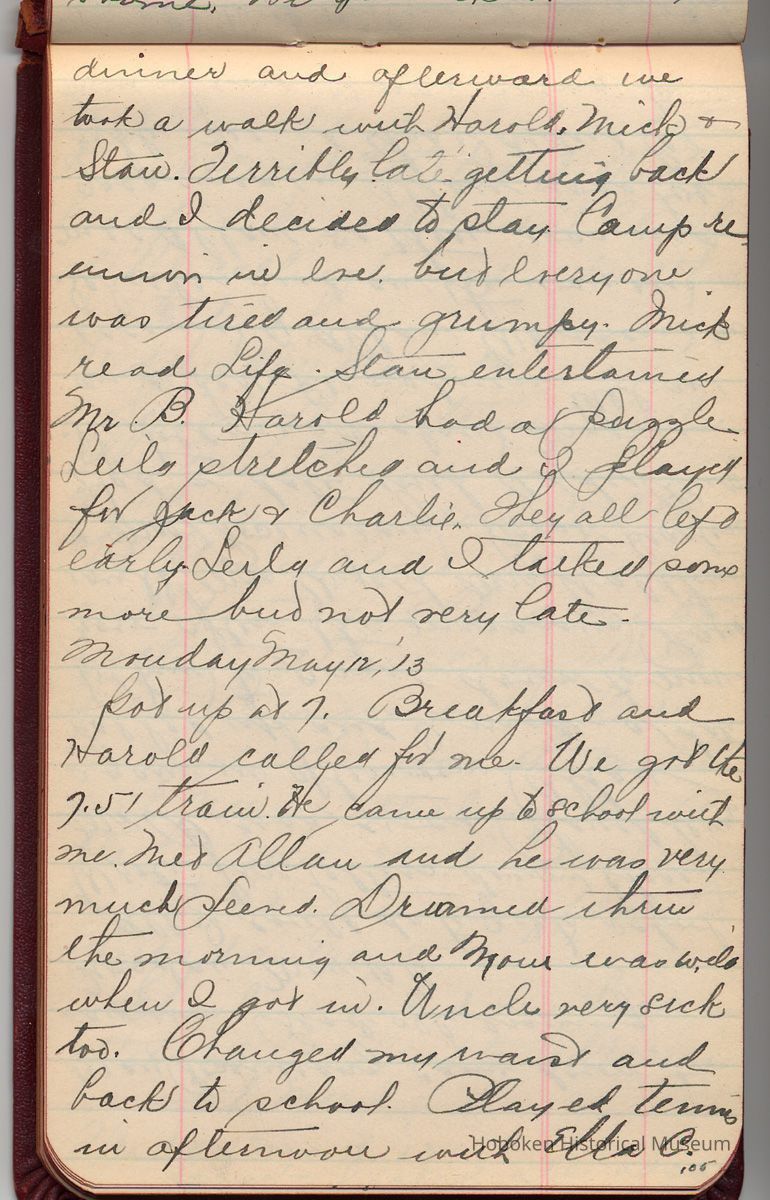 dinner and afterward we
took a walk with Harold, Mick &
Stan. Terribly late getting back
and I decided to stay. Camp re
union in eve. but everyone
was tired and grumpy. Mick
read Life. Stan entertained
Mr. B. Harold had a puzzle
Leila stretched and I played
for Jack & Charlie. They all left
early. Leila and I talked some
more but not very late.
Monday May 12, '13
Got up at 7. Breakfast and
Harold called for me. We got the
7.51 train. He came up to school with
me. Met Allan and he was very
much peeved. Dreamed thru
the morning and Mom was wild
when I got in. Uncle very sick
too. Changed my waist and
back to school. Played tennis
in afternoon with Ella C.
Hoboken Historical Museum